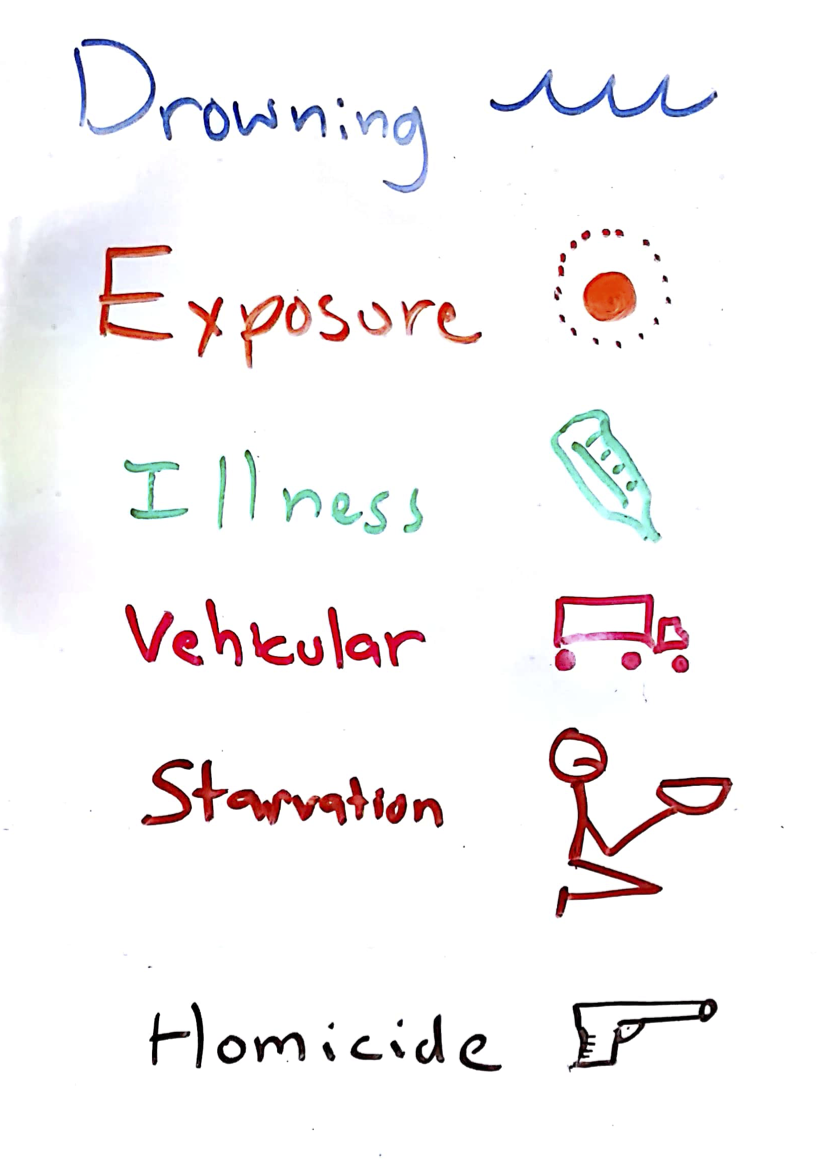 Drowning
Exposure
Illness
Vehicular
Starvation
Homicide